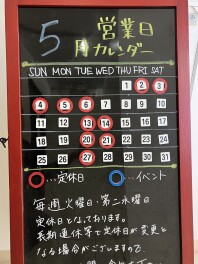 5月
営業日
カレンダー
SUN MON TUE WED THU FRI SAT
1 2 3
4 5 6 7 8 9 10
11 12 13 14 15 16 17
18 19 20 21 22 23 24
25 26 27 28 29 30 31
…定休日 …イベント
毎週火曜日・第二水曜日
定休日となっております。
長期連休等で定休日が変更と
なる場合がございますので